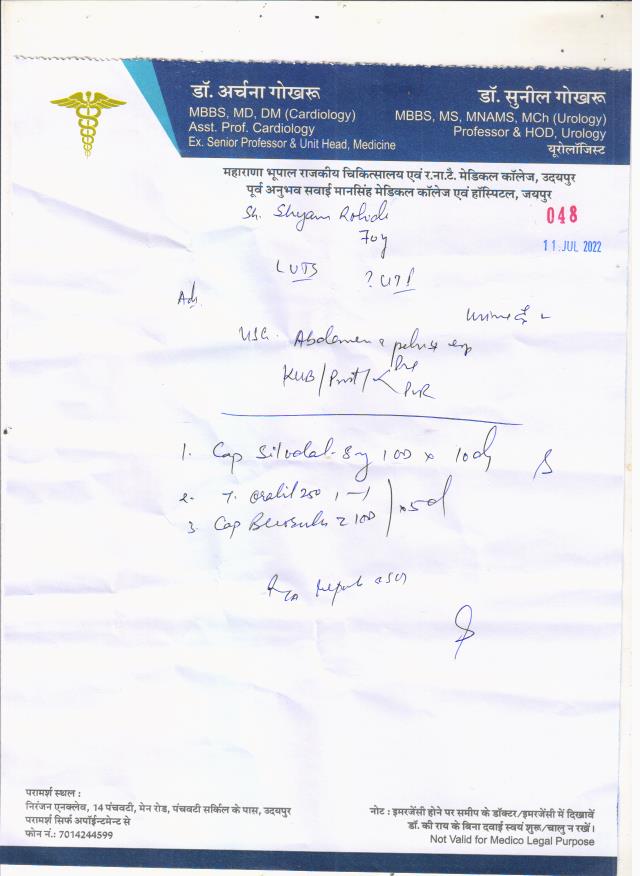 डॉ. अर्चना गोखरू
MBBS, MD, DM (Cardiology)
Asst. Prof. Cardiology
Ex. Senior Professor & Unit Head, Medicine
डॉ. सुनील गोखरू
MBBS, MS, MNAMS, MCh (Urology)
Professor & HOD, Urology
यूरोलॉजिस्ट
महाराणा भूपाल राजकीय चिकित्सालय एवं र.ना.टै. मेडिकल कॉलेज, उदयपुर
पूर्व अनुभव सवाई मानसिंह मेडिकल कॉलेज एवं हॉस्पिटल, जयपुर
048
11 JUL 2022
Sh. Shyam
70y
LUTS ? UTI
Adv.
Urine
USG. Abdomen & pelvis
KUB/Prost/ Pre
PVR
1. Cap Silodal-8mg 1OD x 10d
2. T. 250 1-1
3. Cap 1OD
x 5d
परामर्श स्थल :
निरंजन एनक्लेव, 14 पंचवटी, मेन रोड, पंचवटी सर्किल के पास, उदयपुर
परामर्श सिर्फ अपॉईन्टमेन्ट से
फोन नं.: 7014244599
नोट : इमरजेंसी होने पर समीप के डॉक्टर/इमरजेंसी में दिखावें
डॉ. की राय के बिना दवाई स्वयं शुरू/चालु न रखें।
Not Valid for Medico Legal Purpose